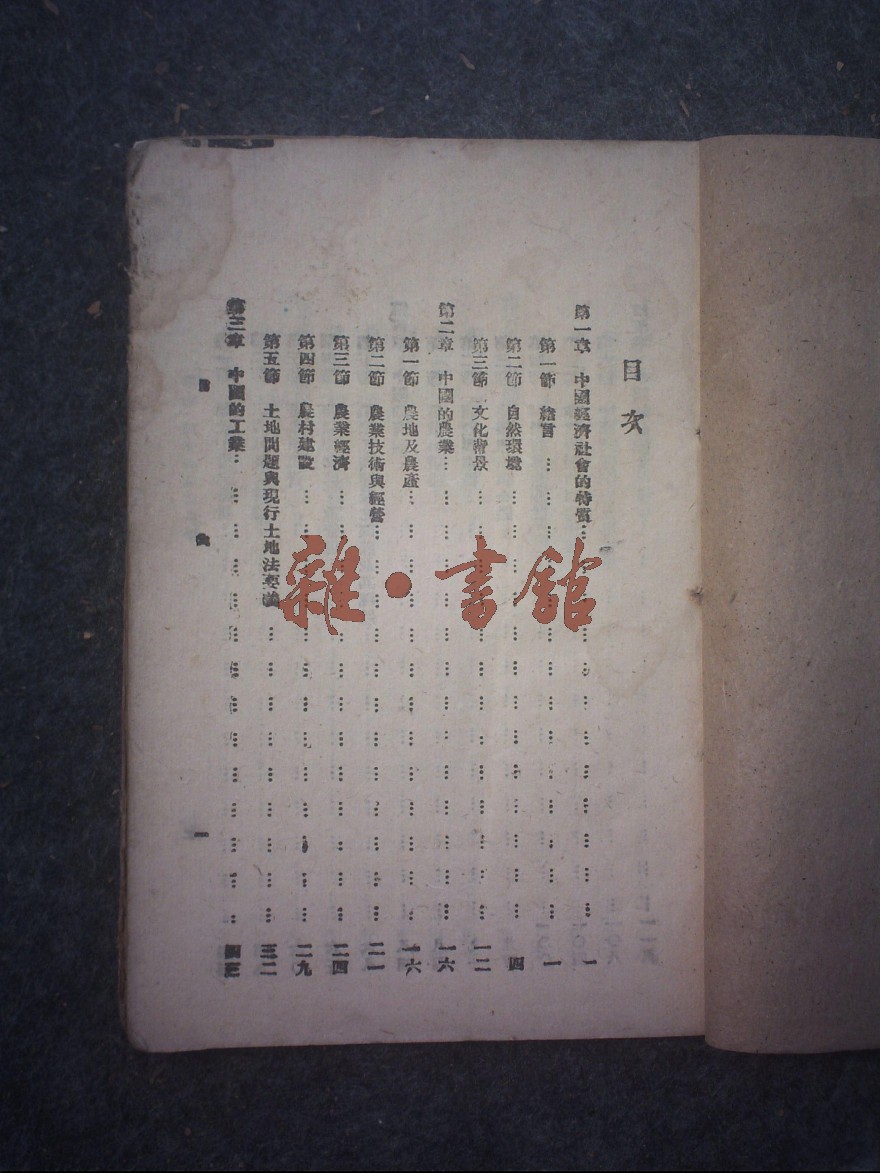 目次
第一章 中國經濟社會的特質……一
第一節 緒言……一
第二節 自然環境……四
第三節 文化背景……一二
第二章 中國的農業……一六
第一節 農地及農產……一六
第二節 農業技術與經營……二一
第三節 農業經濟……二四
第四節 農村建設……二九
第五節 土地問題與現行土地法要義……三二
第三章 中國的工業……
一
雜·書館